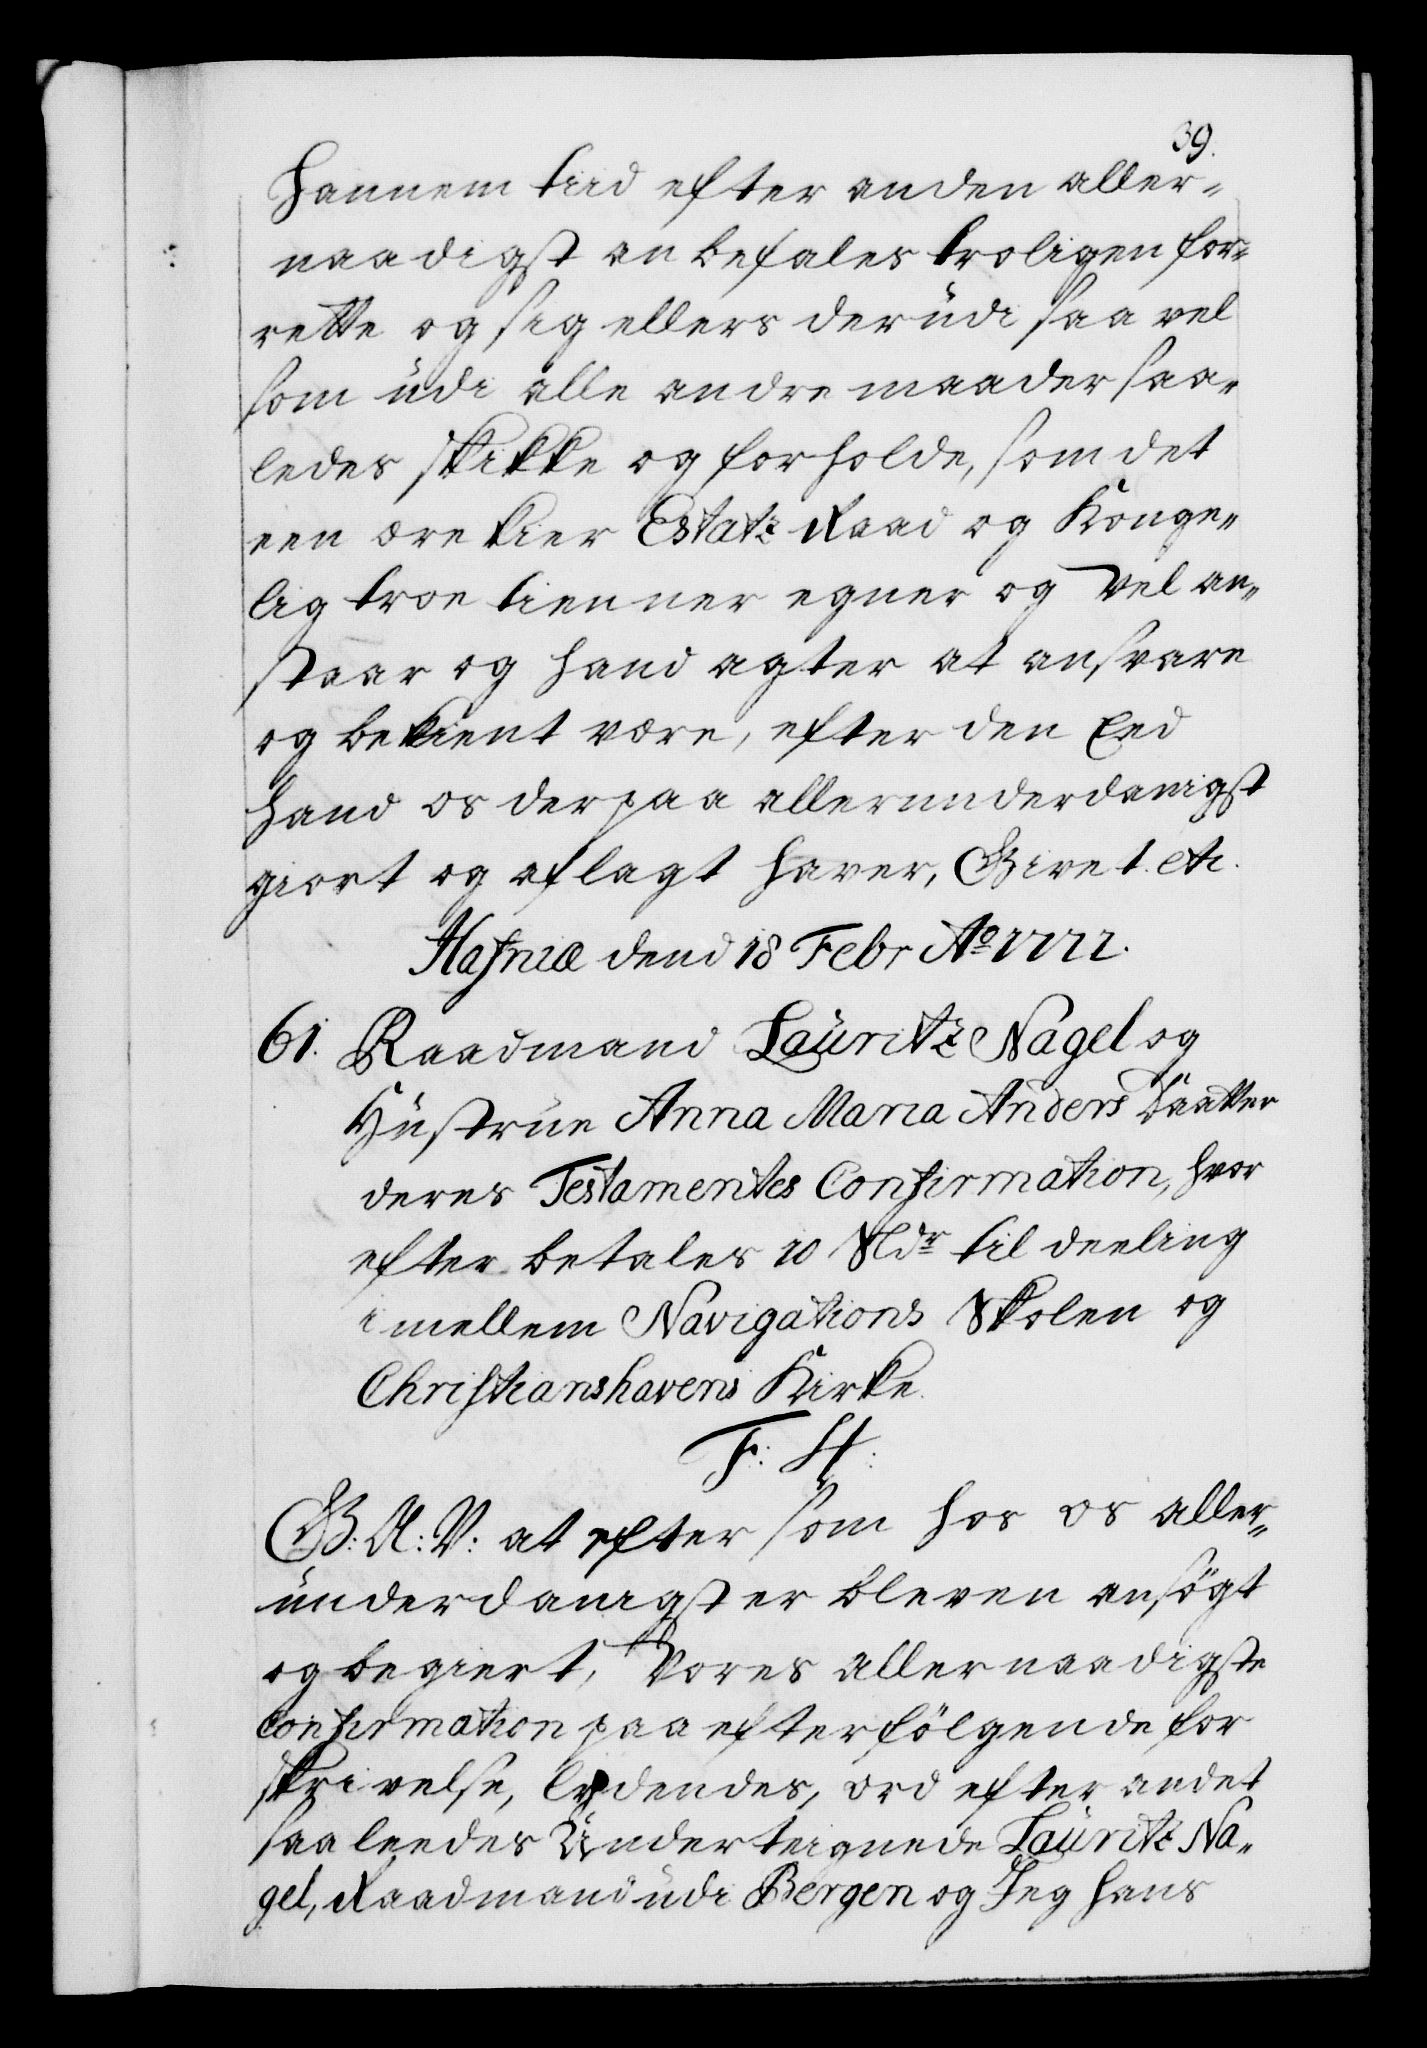 39.
hannem tiid efter anden aller-
naadigst anbefales troligen for-
rette og sig ellers derüdi saa vel
som üdi alle andre maader saa-
ledes skikke og forholde, som det
een ærekier Estatz Raad og Konge-
lig troe tienner egner og vel an-
staar og hand agter at ansvare
og bekient være, efter den Eed
hand os derpaa allerunderdanigst
giort og aflagt haver, Givet. etc.
Hafniæ dend 18 Febr Ao
61. Raadmand Lauritz Nagel og
Hüstrue Anna Maria Anders Daatter
deres Testamentes Confirmation, hvor
efter betales 10 Rdr til deeling
imellem Navigations Skolen og
Christianshavens Kirke.
F: H:
G: A: V: at eftersom hos os aller-
ünderdanigst er bleven ansögt
og begiert, Vores allernaadigste
Confirmation paa efterfölgende for
skrivelse, lydendes, ord efter andet
saaleedes Underteignede Lauritz Na-
gel, Raadmand üdi Bergen og Jeg hans